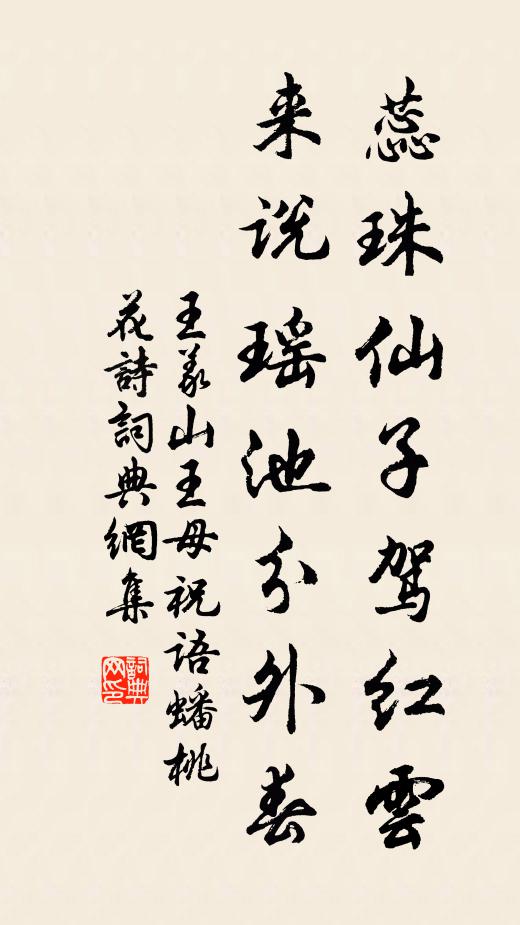 蕊珠仙子驾红雲
来说瑶池分外春
王义山王母祝语蟠桃
花詩詞典網集
詞典網印